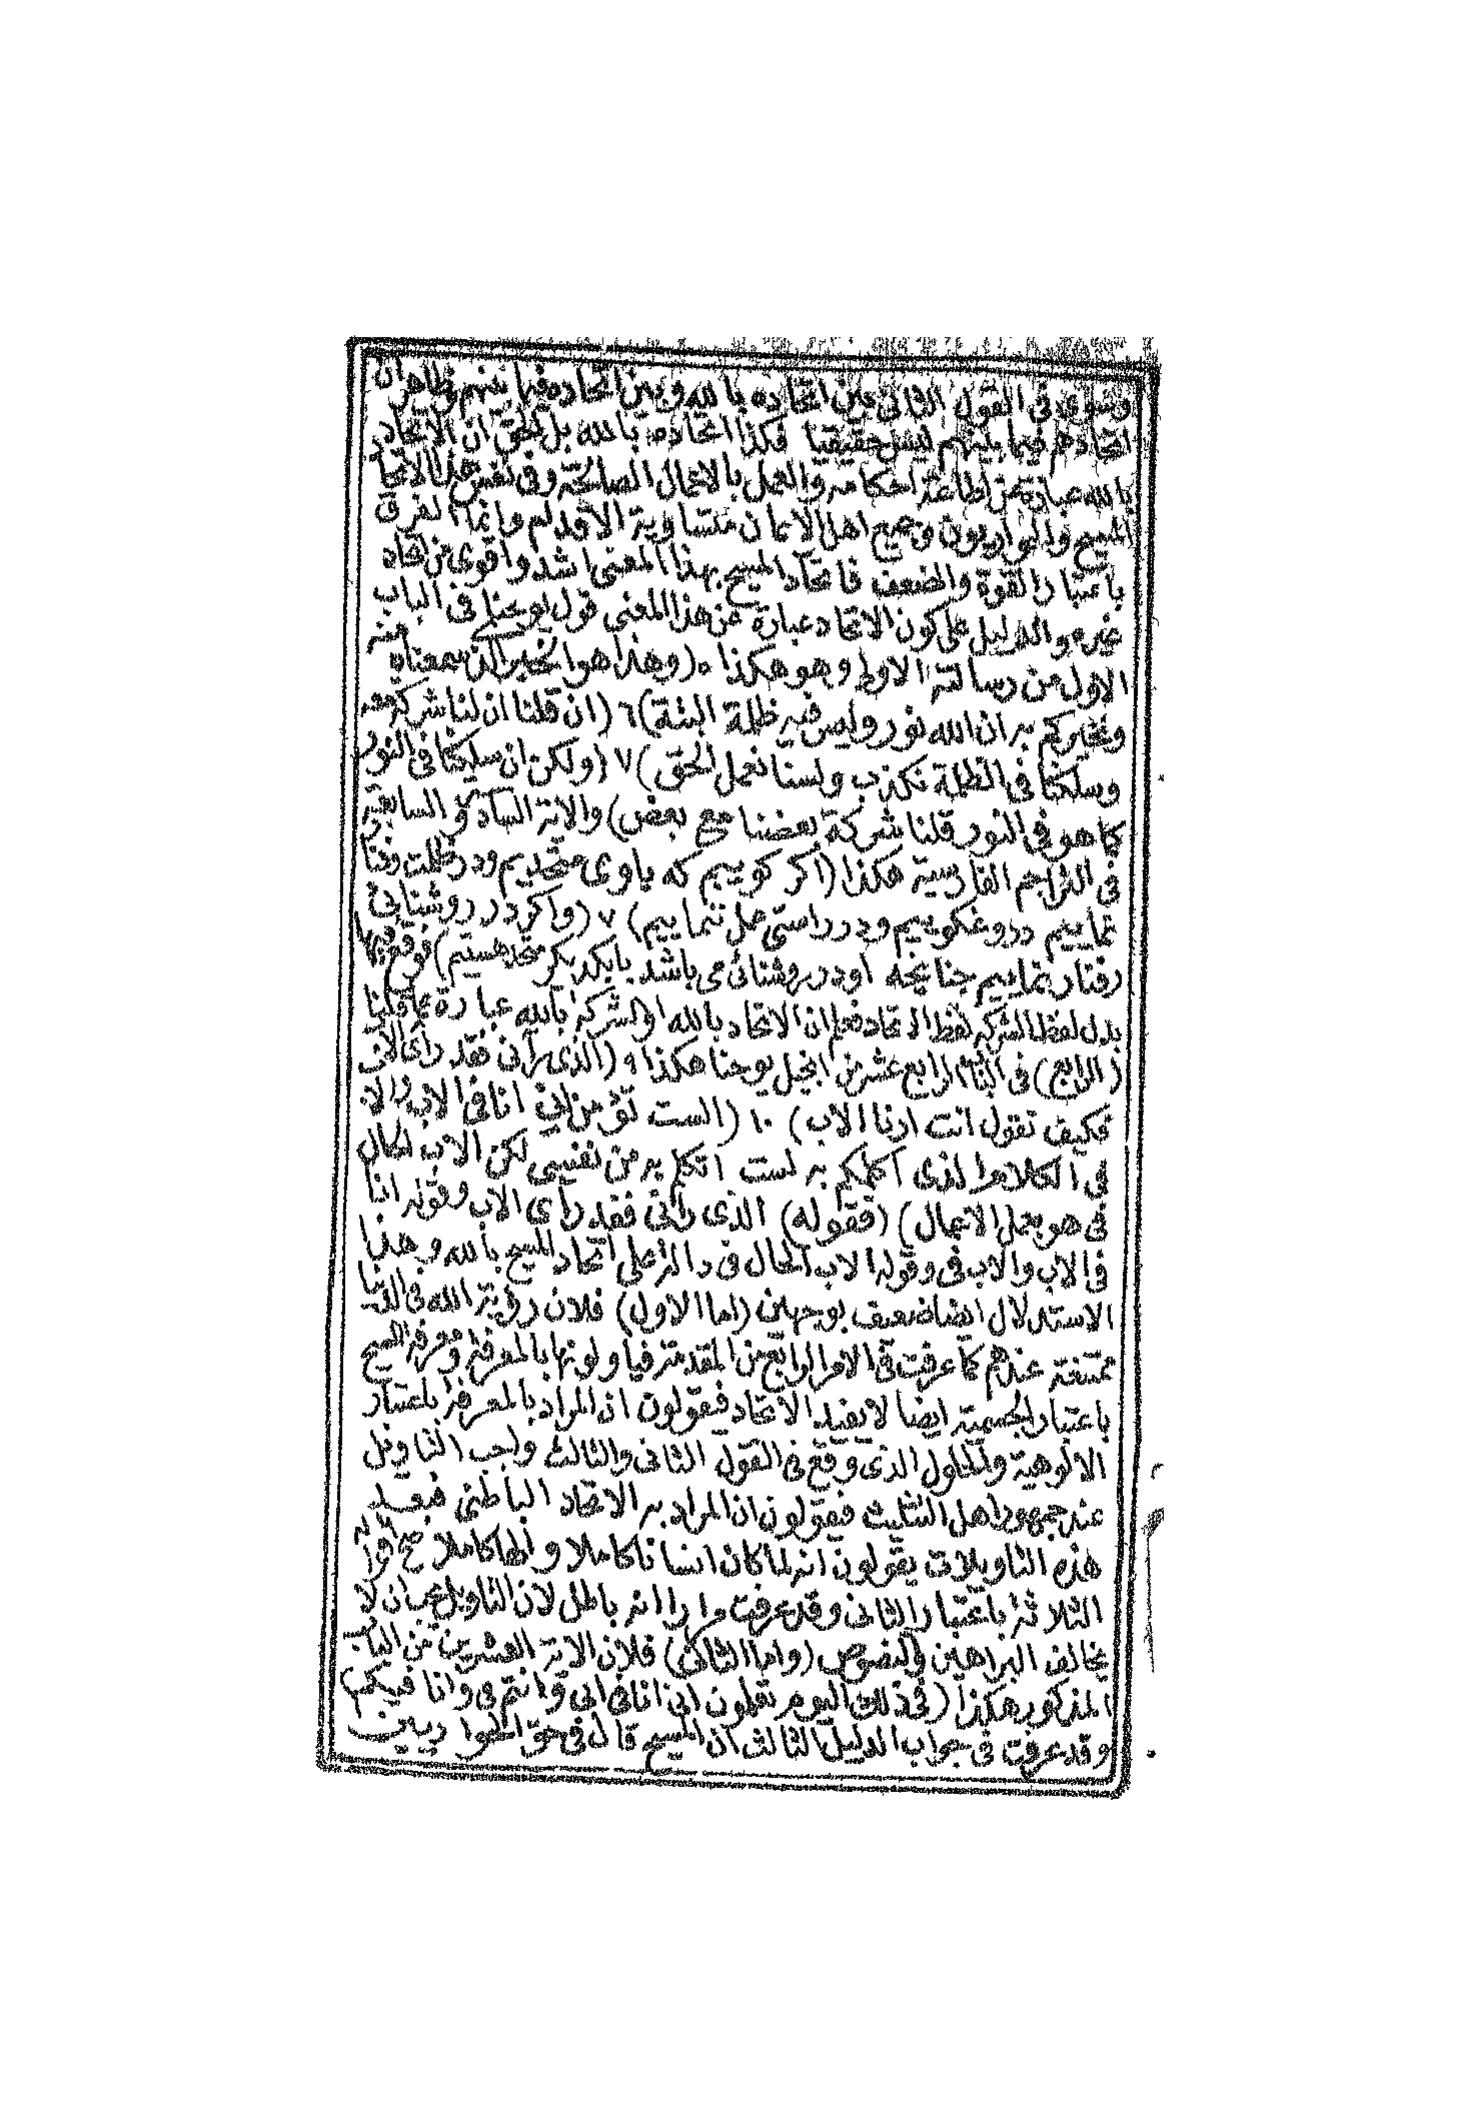 وسوى فى القول الثانى بين اتحاده بالله وبين اتحاده فيما بينهم وظاهر ان
اتحادهم فيما بينهم ليس حقيقيا فكذا اتحاده بالله بل الحق ان الاتحاد
بالله عبارة عن اطاعة احكامه والعمل بالاعمال الصالحة وفى نفس هذا الاتحاد
المسيح والحواريون وجميع اهل الايمان متساوية الاقدام وانما الفرق
باعتبار القوة والضعف فاتحاد المسيح بهذا المعنى اشد واقوى من اتحاد
غيره والدليل على كون الاتحاد عبارة عن هذا المعنى قول يوحنا فى الباب
الاول من رسالته الاولى وهو هكذا ٥ (وهذا هو الخبر الذى سمعناه منه
ونخبركم به ان الله نور وليس فيه ظلمة البتة) ٦ (ان قلنا ان لنا شركة معه
وسلكنا فى الظلمة نكذب ولسنا نعمل الحق) ٧ (ولكن ان سلكنا فى النور
كما هو فى النور فلنا شركة بعضنا مع بعض) والاية السادسة والسابعة
فى التراجم الفارسية هكذا (اكر كوييم كه باوى متحديم ودر ظلمت رفتار
نماييم دروغكوييم ودر راستى عمل ننماييم) ٧ (واكر در روشنائى
رفتار نماييم چنانچه او در روشنائى مى باشد بايكديكر متحد هستيم) فوقع فيها
بدل لفظ الشركة لفظ الاتحاد فعلم ان الاتحاد بالله او الشركة بالله عبارة عما قلنا
(الرابع) فى الباب الرابع عشر من انجيل يوحنا هكذا ٩ (الذى رآنى فقد رأى الاب
فكيف تقول انت ارنا الاب) ١٠ (الست تؤمن انى انا فى الاب والاب
فى الكلام الذى اكلمكم به لست اتكلم به من نفسى لكن الاب الحال
فى هو يعمل الاعمال) (فقوله) الذى رآنى فقد رأى الاب وقوله انا
فى الاب والاب فى وقوله الاب الحال فى دالة على اتحاد المسيح بالله وهذا
الاستدلال ايضا ضعيف بوجهين (اما الاول) فلان رؤية الله فى الدنيا
ممتنعة عندهم كما عرفت فى الامر الرابع من المقدمة فيأولونها بالمعرفة ومعرفة المسيح
باعتبار الجسمية ايضا لا يفيد الاتحاد فيقولون ان المراد بالمعرفة باعتبار
الالوهية والحلول الذى وقع فى القول الثانى والثالث واجب التاويل
عند جمهور اهل التثليث فيقولون ان المراد به الاتحاد الباطنى فبعد
هذه التاويلات يقولون انه لما كان انسانا كاملا والها كاملا صح اقواله
الثلاثة باعتبار الثانى وقد عرفت مرارا انه باطل لان التاويل يجب ان لا
يخالف البراهين والنصوص (واما الثانى) فلان الاية العشرين من الباب
المذكور هكذا (فى ذلك اليوم تعلمون انى انا فى ابى وانتم فى وانا فيكم)
وقد عرفت فى جواب الدليل الثالث ان المسيح قال فى حق الحواريين